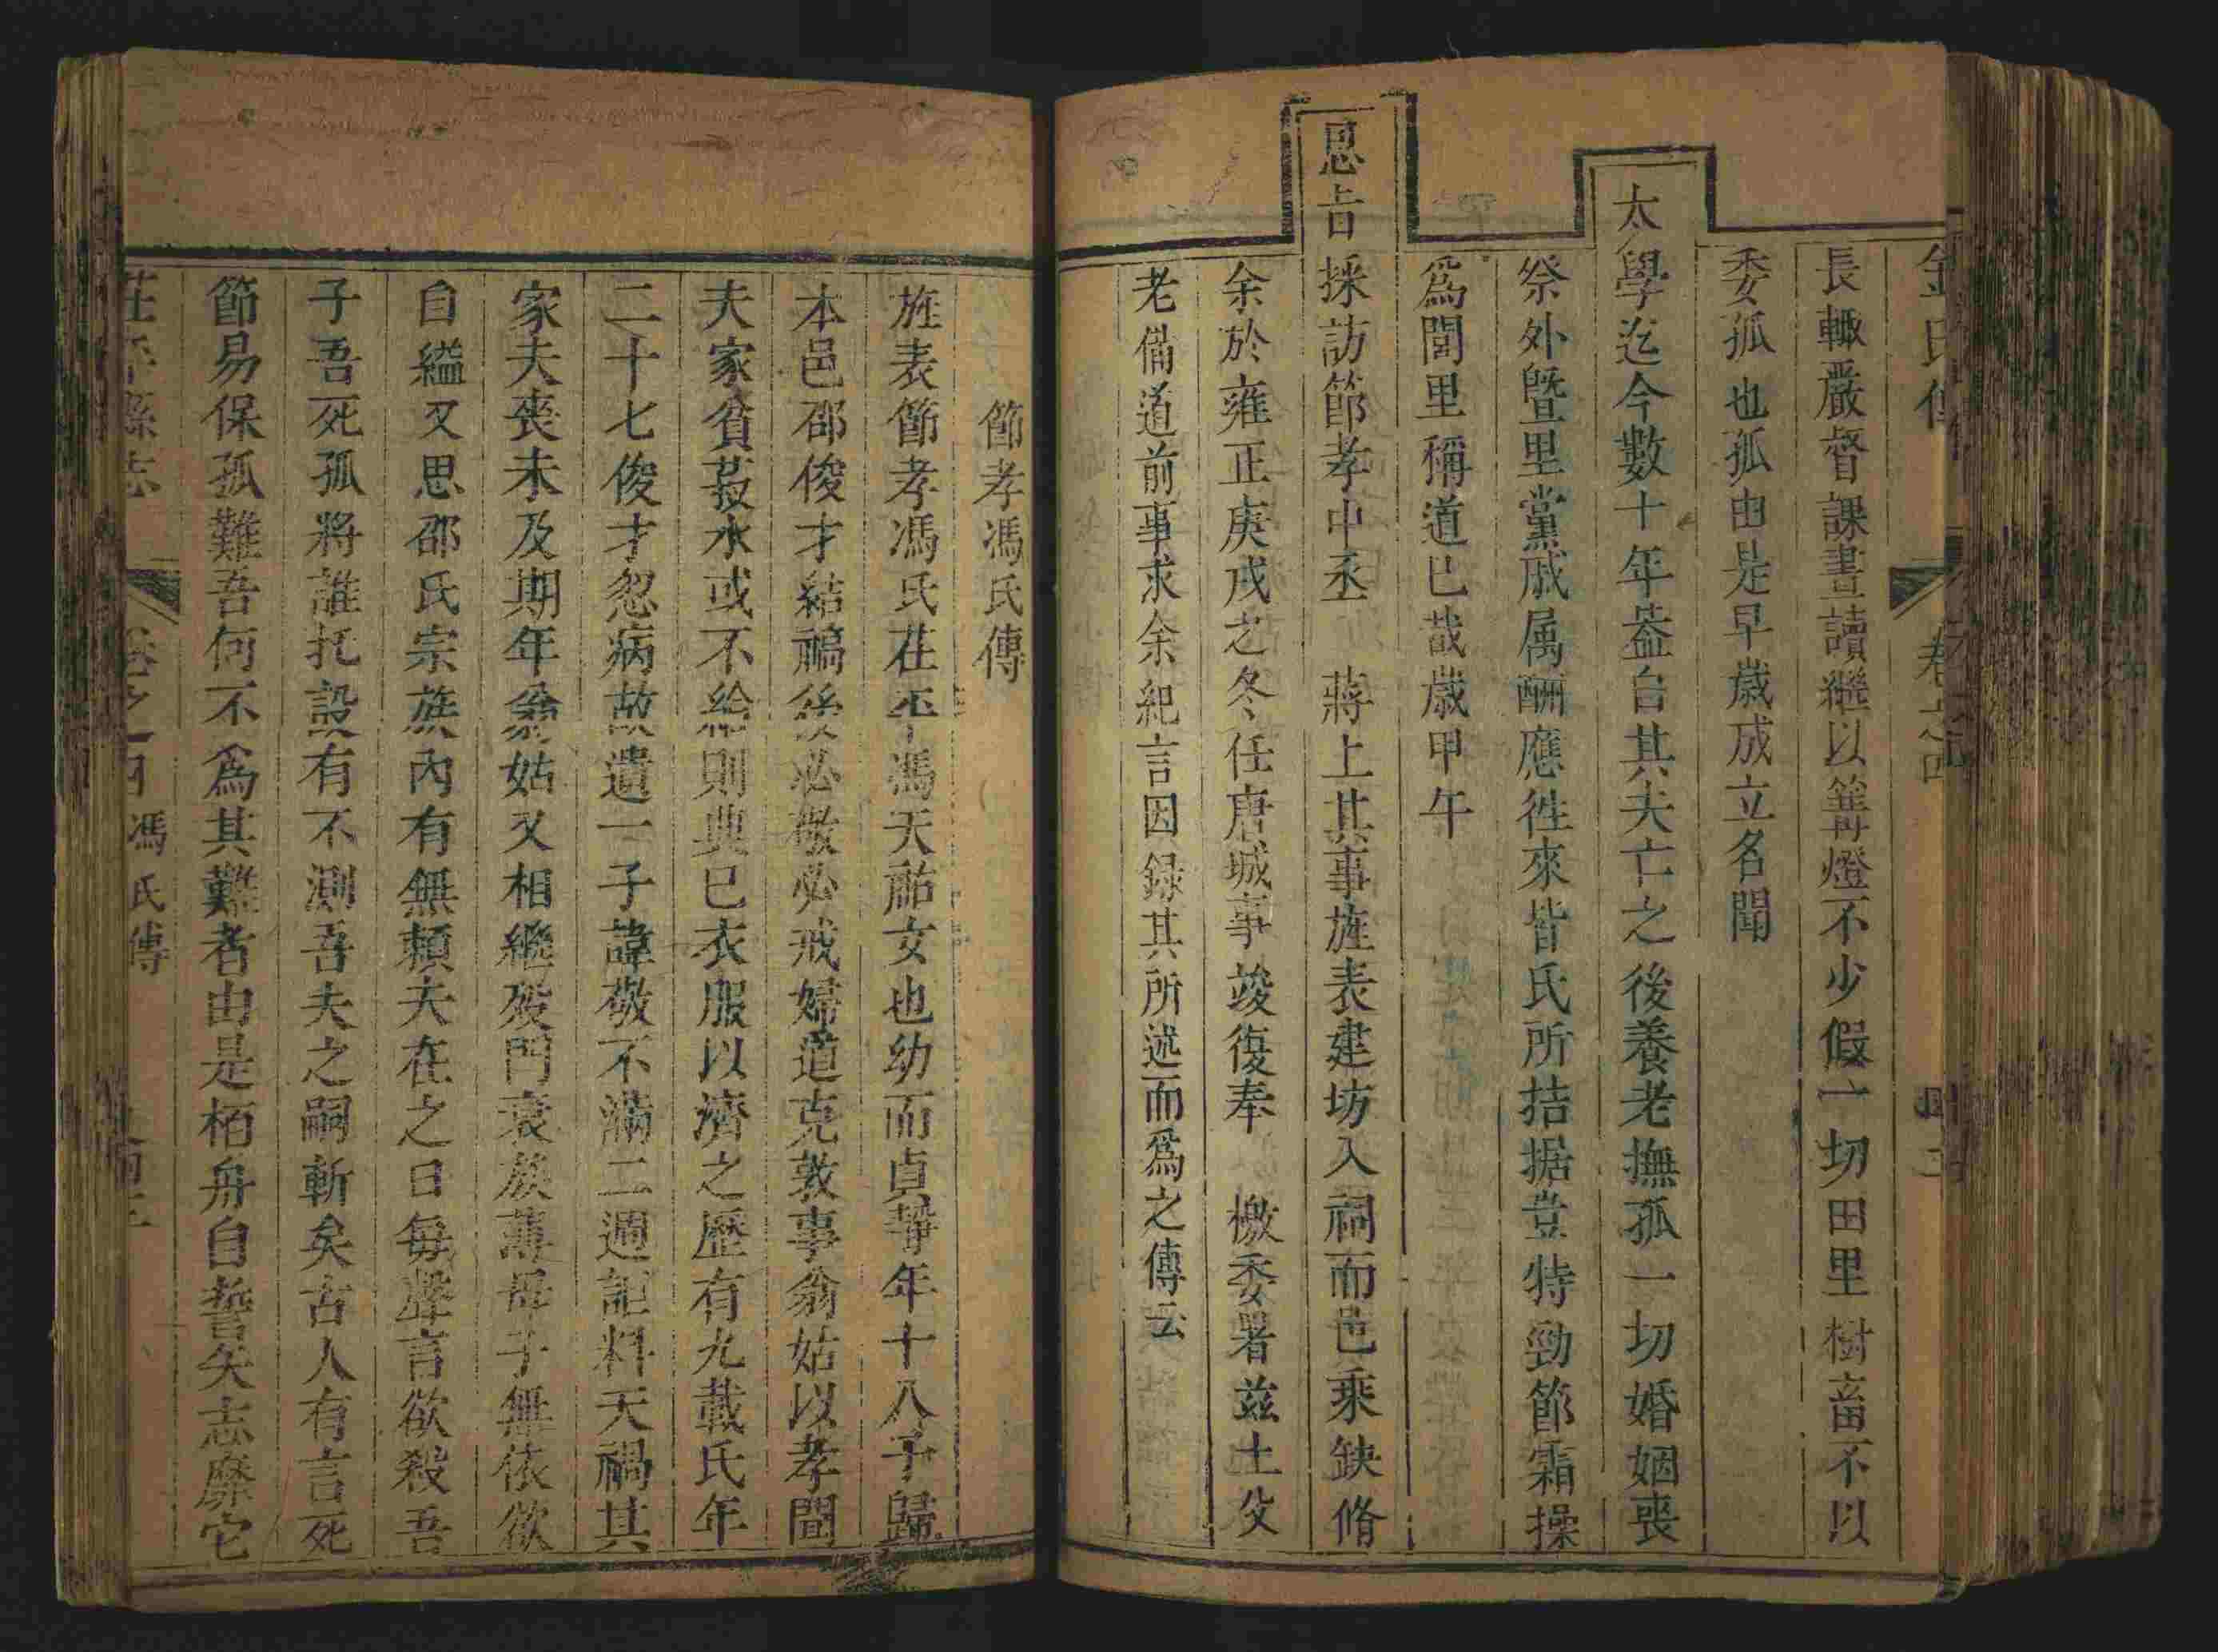 金氏傳 卷之四
長輙嚴督課晝讀繼以篝燈不少假一切田里樹畜不以
委孤也孤由是早歲成立名聞
太學迄今數十年葢自其夫亡之後養老撫孤一切婚姻喪
祭外曁里黨戚属酬應徃來皆氏所拮据豈特勁節霜操
爲閭里稱道已哉歲甲午
恩旨採訪節孝中丞 蔣上其事旌表建坊入祠而邑乘缺脩
余於雍正庚戌之冬任唐城事竣復奉 檄委署兹土父
老備道前事求余紀言因録其所述而爲之傳云
節孝馮氏傳
旌表節孝馮氏茌平馮天祐女也幼而貞靜年十八于歸
本邑邵俊才結褵後必敬必戒婦道克敦事翁姑以孝聞
夫家貧菽水或不給則典巳衣服以濟之歷有九載氏年
二十七俊才忽病故遺一子諱敬不滿二週詎料天禍其
家夫喪未及期年翁姑又相繼歿門衰族薄母子無依欲
自縊又思邵氏宗族內有無賴夫在之日每聲言欲殺吾
子吾死孤將誰托設有不測吾夫之嗣斬矣古人有言死
節易保孤難吾何不爲其難者由是栢舟自誓矢志靡它
茌平縣志 卷之四 馮氏傳